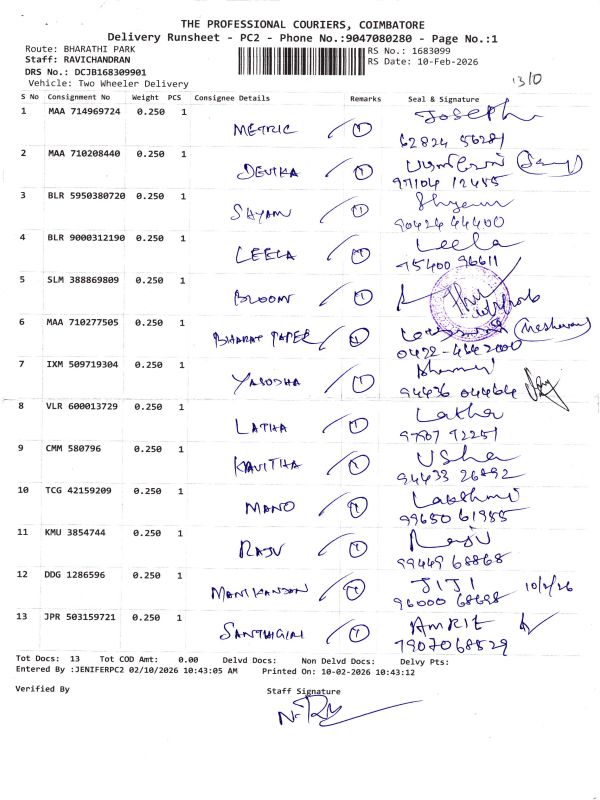 THE PROFESSIONAL COURIERS, COIMBATORE
Delivery Runsheet - PC2 - Phone No.:9047080280 - Page No.:1
Route: BHARATHI PARK
RS No.: 1683099
Staff: RAVICHANDRAN
RS Date: 10-Feb-2026
DRS No.: DCJB168309901
Vehicle: Two Wheeler Delivery
13/0
S No Consignment No Weight PCS Consignee Details Remarks Seal & Signature
1 MAA 714969724 0.250 1 METRIC 1 Joseph
62824 56281
2 MAA 710208440 0.250 1 DEVIKA 1
97104 12455
3 BLR 5950380720 0.250 1 SHYAM 1 Shyam
90424 44400
4 BLR 9000312190 0.250 1 LEELA 1 Leela
75400 96611
5 SLM 388869809 0.250 1 BLOOM 1
6 MAA 710277505 0.250 1 BHARAT PAPER 1
0422-4642000
7 IXM 509719304 0.250 1 YASODHA 1
94436 04464
8 VLR 600013729 0.250 1 LATHA 1 Latha
97907 92251
9 CMM 580796 0.250 1 KAVITHA 1 Usha
94433 26892
10 TCG 42159209 0.250 1 MANO 1 Lakshmi
99650 61985
11 KMU 3854744 0.250 1 RAJU 1 Raju
99449 68868
12 DDG 1286596 0.250 1 MANIKANDAN 1 JIJI 10/2/26
96000 68698
13 JPR 503159721 0.250 1 SANTHIGIRI 1 AMRIT
7907068529
Tot Docs: 13 Tot COD Amt: 0.00 Delvd Docs: Non Delvd Docs: Delvy Pts:
Entered By :JENIFERPC2 02/10/2026 10:43:05 AM Printed On: 10-02-2026 10:43:12
Verified By
Staff Signature